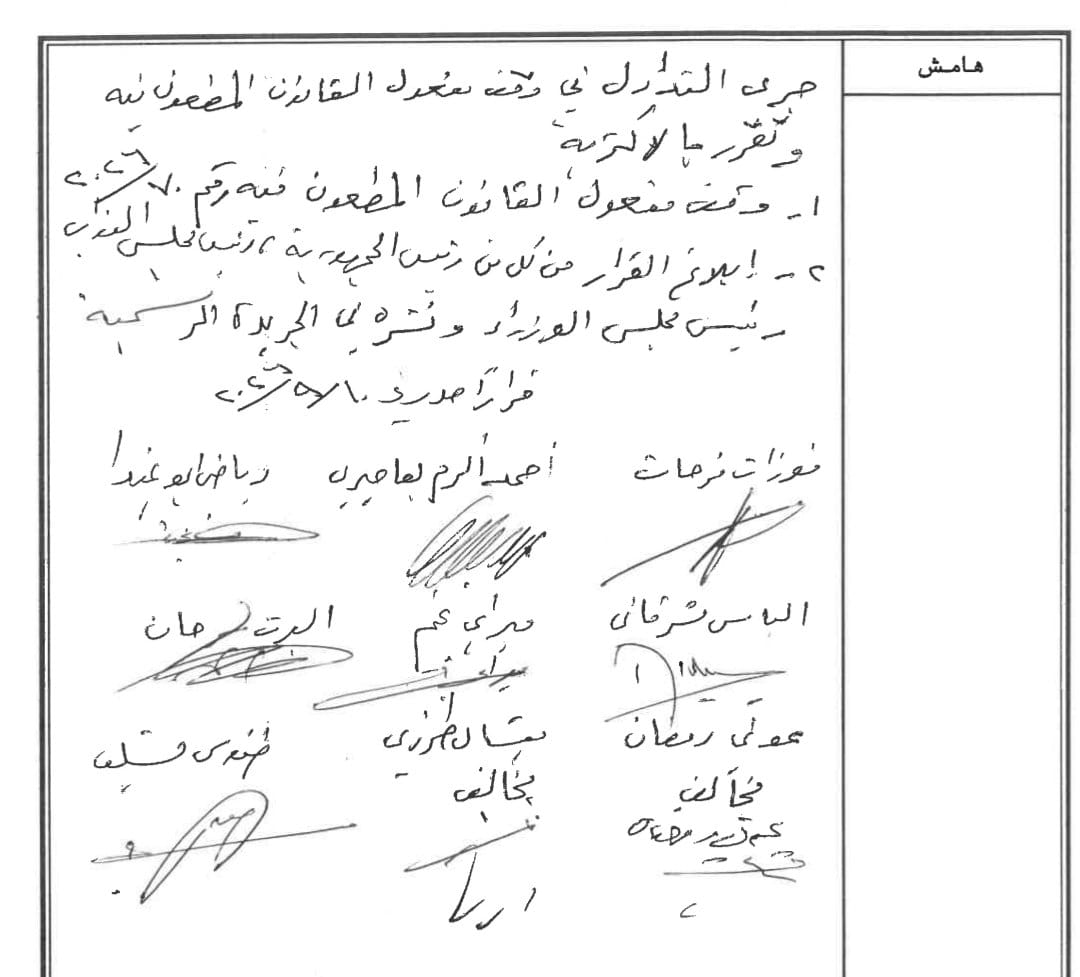 هامش
جرى التداول في وقف مفعول القانون المطعون فيه
وتقرر بالاكثرية
١- وقف مفعول القانون المطعون فيه رقم ٧٠/٢٠٢٦
٢- إبلاغ القرار من كل من رئيس الجمهورية، رئيس مجلس النواب
رئيس مجلس الوزراء ونشره في الجريدة الرسمية
قراراً صدر في
فوزات فرحات أحمد أكرم بعاصيري رياض أبو غيدا
الياس مشرقاني ميراي نجم البرت سرحان
عوني رمضان ميشال طرزي طنوس مشلب
مخالف مخالف